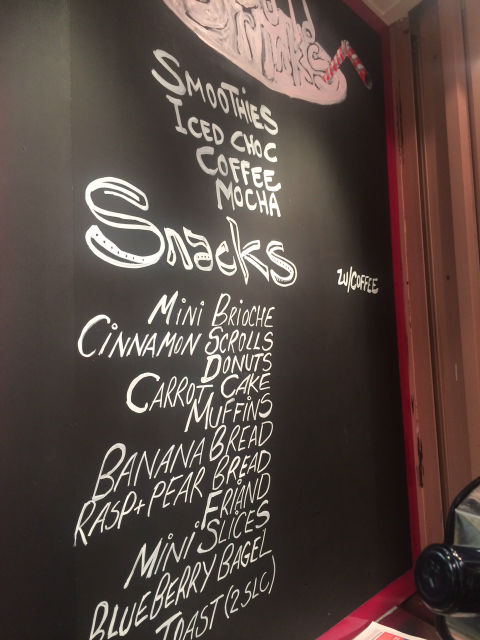 Cold
Drinks
SMOOTHIES
ICED CHOC
COFFEE
MOCHA
Snacks
w/COFFEE
MINI BRIOCHE
CINNAMON SCROLLS
DONUTS
CARROT CAKE
MUFFINS
BANANA BREAD
RASP+PEAR BREAD
FRIAND
MINI SLICES
BLUEBERRY BAGEL
TOAST (2 SLC)